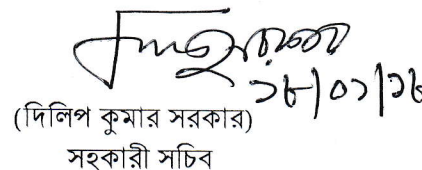 ১৮/০১/১৮
(দিলিপ কুমার সরকার)
সহকারী সচিব